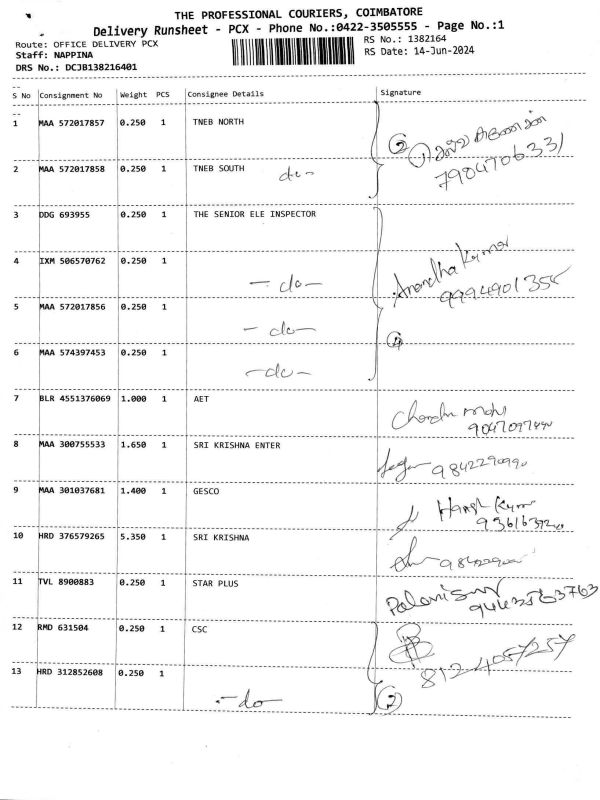 THE PROFESSIONAL COURIERS, COIMBATORE
Delivery Runsheet - PCX - Phone No.:0422-3505555 - Page No.:1
Route: OFFICE DELIVERY PCX
RS No.: 1382164
Staff: NAPPINA
RS Date: 14-Jun-2024
DRS No.: DCJB138216401
S No Consignment No Weight PCS Consignee Details Signature
1 MAA 572017857 0.250 1 TNEB NORTH
2 MAA 572017858 0.250 1 TNEB SOUTH do-
② 7904706331
3 DDG 693955 0.250 1 THE SENIOR ELE INSPECTOR
4 IXM 506570762 0.250 1 -do-
Anandha Kumar
9994901355
5 MAA 572017856 0.250 1 -do-
④
6 MAA 574397453 0.250 1 -do-
7 BLR 4551376069 1.000 1 AET
8 MAA 300755533 1.650 1 SRI KRISHNA ENTER
9 MAA 301037681 1.400 1 GESCO
10 HRD 376579265 5.350 1 SRI KRISHNA
11 TVL 8900883 0.250 1 STAR PLUS
9442563763
12 RMD 631504 0.250 1 CSC
8124057257
13 HRD 312852608 0.250 1 -do ②